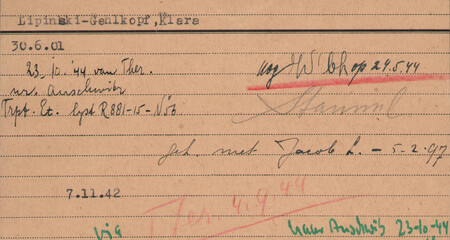 Lipinski-Gehlkopf, Klara
30.6.01
23.10.'44 van Ther.
nr. Auschwitz
Trpt. Et. lyst R 881-15-No6
op 24.5.44
geh. met Jacob L. - 5-2-97
7.11.42
Ther. 4.9.44
via
naar Auschwitz 23-10-44